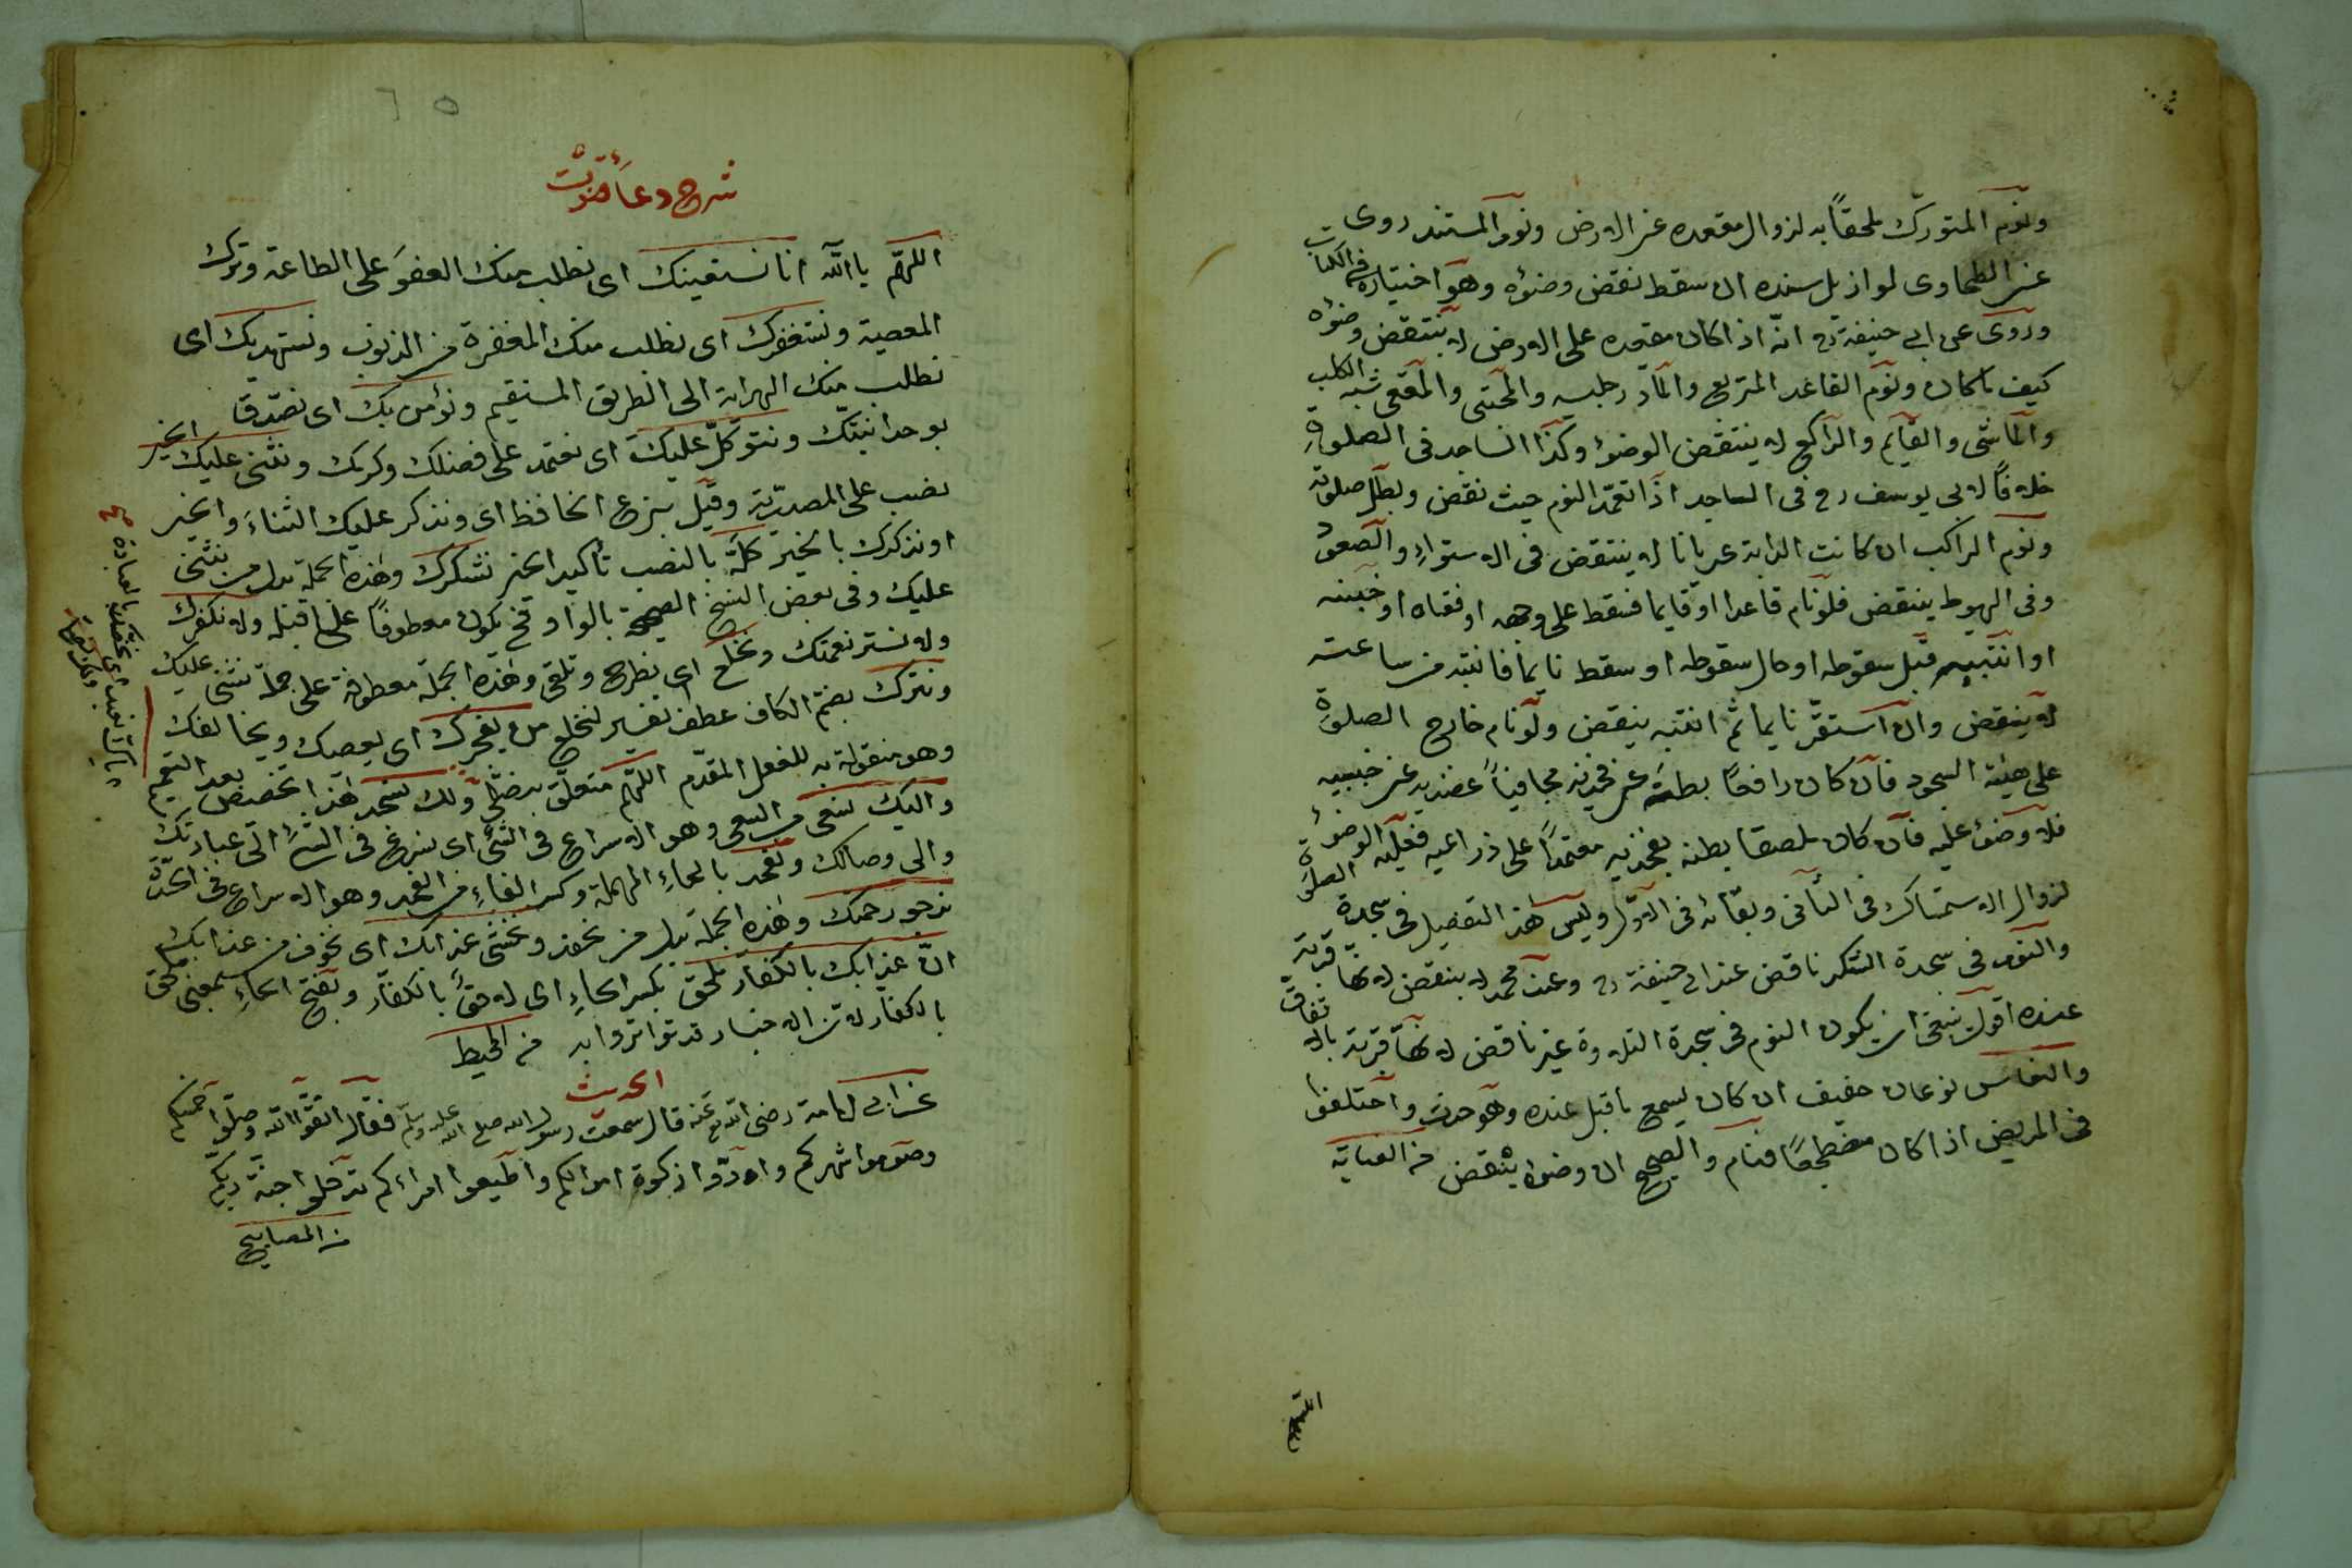 ونوم المتورّك ملحقاً به لزوال مقعده عن الارض ونوم المستند روى
عن الطحاوى لو ازيل سنده ان سقط نقض وضوءه وهو اختياره فى الكتاب
وروى عن ابى حنيفة رح انّه اذا كان مقعده على الارض لا ينتقض وضوءه
كيف ما كان ونوم القاعد المتربع والمادّ رجليه والمحتبى والمقعى شبه الكلب
والماشى والقايم والراكع لا ينتقض الوضوء وكذا الساجد فى الصلوة
خلافاً لابى يوسف رح فى الساجد اذا تعمّد النوم حيث نقض وبطل صلوته
ونوم الراكب ان كانت الدابة عريانا لا ينتقض فى الاستواء والصعود
وفى الهبوط ينتقض فلو نام قاعدا او قايما فسقط على وجهه او فقاه او جبينه
او انتبه قبل سقوطه او حال سقوطه او سقط نايما فانتبه من ساعته
لا ينقض وان استقرّ نايما ثم انتبه ينقض ولو نام خارج الصلوة
على هيئة السجود فان كان رافعاً بطنه عن فخذيه مجافياً عضديه عن جنبيه
فلا وضوء عليه فان كان ملصقا بطنه بفخذيه معتمداً على ذراعيه فعليه الوضوء
لزوال الاستمساك فى الثانى وبقائه فى الاوّل وليس هذا التفصيل فى سجدة الصلوة
والنوم فى سجدة الشكر ناقض عند ابى حنيفة رح وعند محمد لا ينقض لانها قربة
عنده اقول ينبغى ان يكون النوم فى سجدة التلاوة غير ناقض لانها قربة بالاتفاق
والنعاس نوعان خفيف ان كان يسمع ما قيل عنده وهو حدث واختلفوا
فى المريض اذا كان مضطجعاً فنام والصحيح ان وضوءه ينتقض من العناية
شرح دعاء قنوت
اللهمّ يا الله انا نستعينك اى نطلب منك العفو على الطاعة وترك
المعصية ونستغفرك اى نطلب منك المغفرة من الذنوب ونستهديك اى
نطلب منك الهداية الى الطريق المستقيم ونؤمن بك اى نصدّق
بوحدانيتك ونتوكل عليك اى نعتمد على فضلك وكرمك ونثنى عليك الخير
نصب على المصدريّة وقيل بنزع الخافظ اى ونذكر عليك الثناء والخير
او نذكرك بالخير كلّه بالنصب تأكيد الخير نشكرك وهذه الجملة بدل من نثنى
عليك وفى بعض النسخ الصحيحة بالواو فح يكون معطوفاً على ما قبله ولا نكفرك
ولا نستر نعمتك ونخلع اى نطرح ونلقى وهذه الجملة معطوفة على جملة نثنى عليك
ونترك بضم الكاف عطف تفسير لنخلع من يفجرك اى يعصيك ويخالفك
وهو منقولة به للفعل المقدّم اللهم متعلق بنصلى ولك نسجد هذا تخصيص بعد التعميم
واليك نسعى من السعى وهو الاسراع فى الشئ اى نسرع فى الشئ الى عبادتك
والى وصالك ونحفد بالحاء المهملة وكسر الفاء من الحفد وهو الاسراع فى الخدمة
نرجو رحمتك وهذه الجملة بدل من نحفد ونخشى عذابك اى نخوف من عذابك
انّ عذابك بالكفار ملحق بكسر الحاء اى لاحق بالكفار وبفتح الحاء بمعنى ملحق
بالكفار لان الاخبار قد تواتر وا به من المحيط
الحديث
عن ابى امامة رضى الله تع عنه قال سمعت رسول الله صلى الله عليه وسلم فقال اتقوا الله وصلّوا خمسكم
وصوموا شهركم وادّوا زكوة اموالكم واطيعوا امراءكم تدخلوا جنة ربكم
من المصابيح